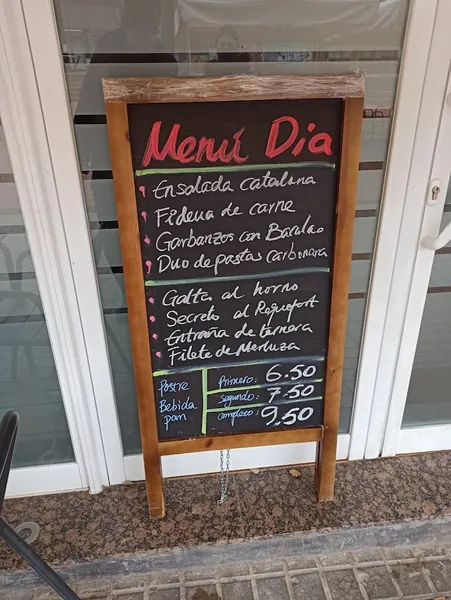 Menú Dia
Ensalada catalana
Fideua de carne
Garbanzos con Bacalao
Duo de pastas carbonara
Galta al horno
Secreto al Roquefort
Entraña de ternera
Filete de Merluza
Postre
Bebida
pan
Primero: 6.50
segundo: 7.50
completo: 9.50